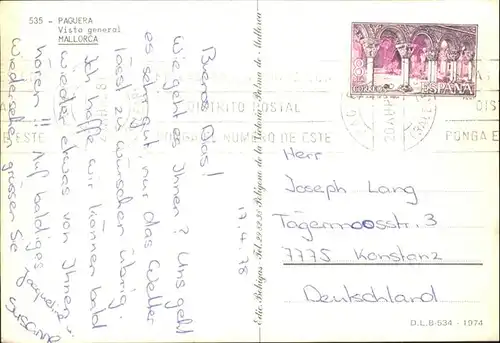 535 - PAGUERA
Vista general
MALLORCA
Buenos Dias!
Wie geht es Ihnen? Uns geht
es sehr gut nur das Wetter
lässt zu wünschen übrig.
Ich hoffe wir können bald
wieder etwas von Ihnen
hören!! Auf baldiges
Wiedersehen grüssen Sie
Jaqueline
Susanna
17.4.78
DISTRITO POSTAL
PONGA EL NUMERO DE ESTE
DIS
PONGA E
ESTE
CORREOS
ESPAÑA
Herr
Joseph Lang
Tägermoosstr. 3
7775 Konstanz
Deutschland
D.L.B-534 - 1974